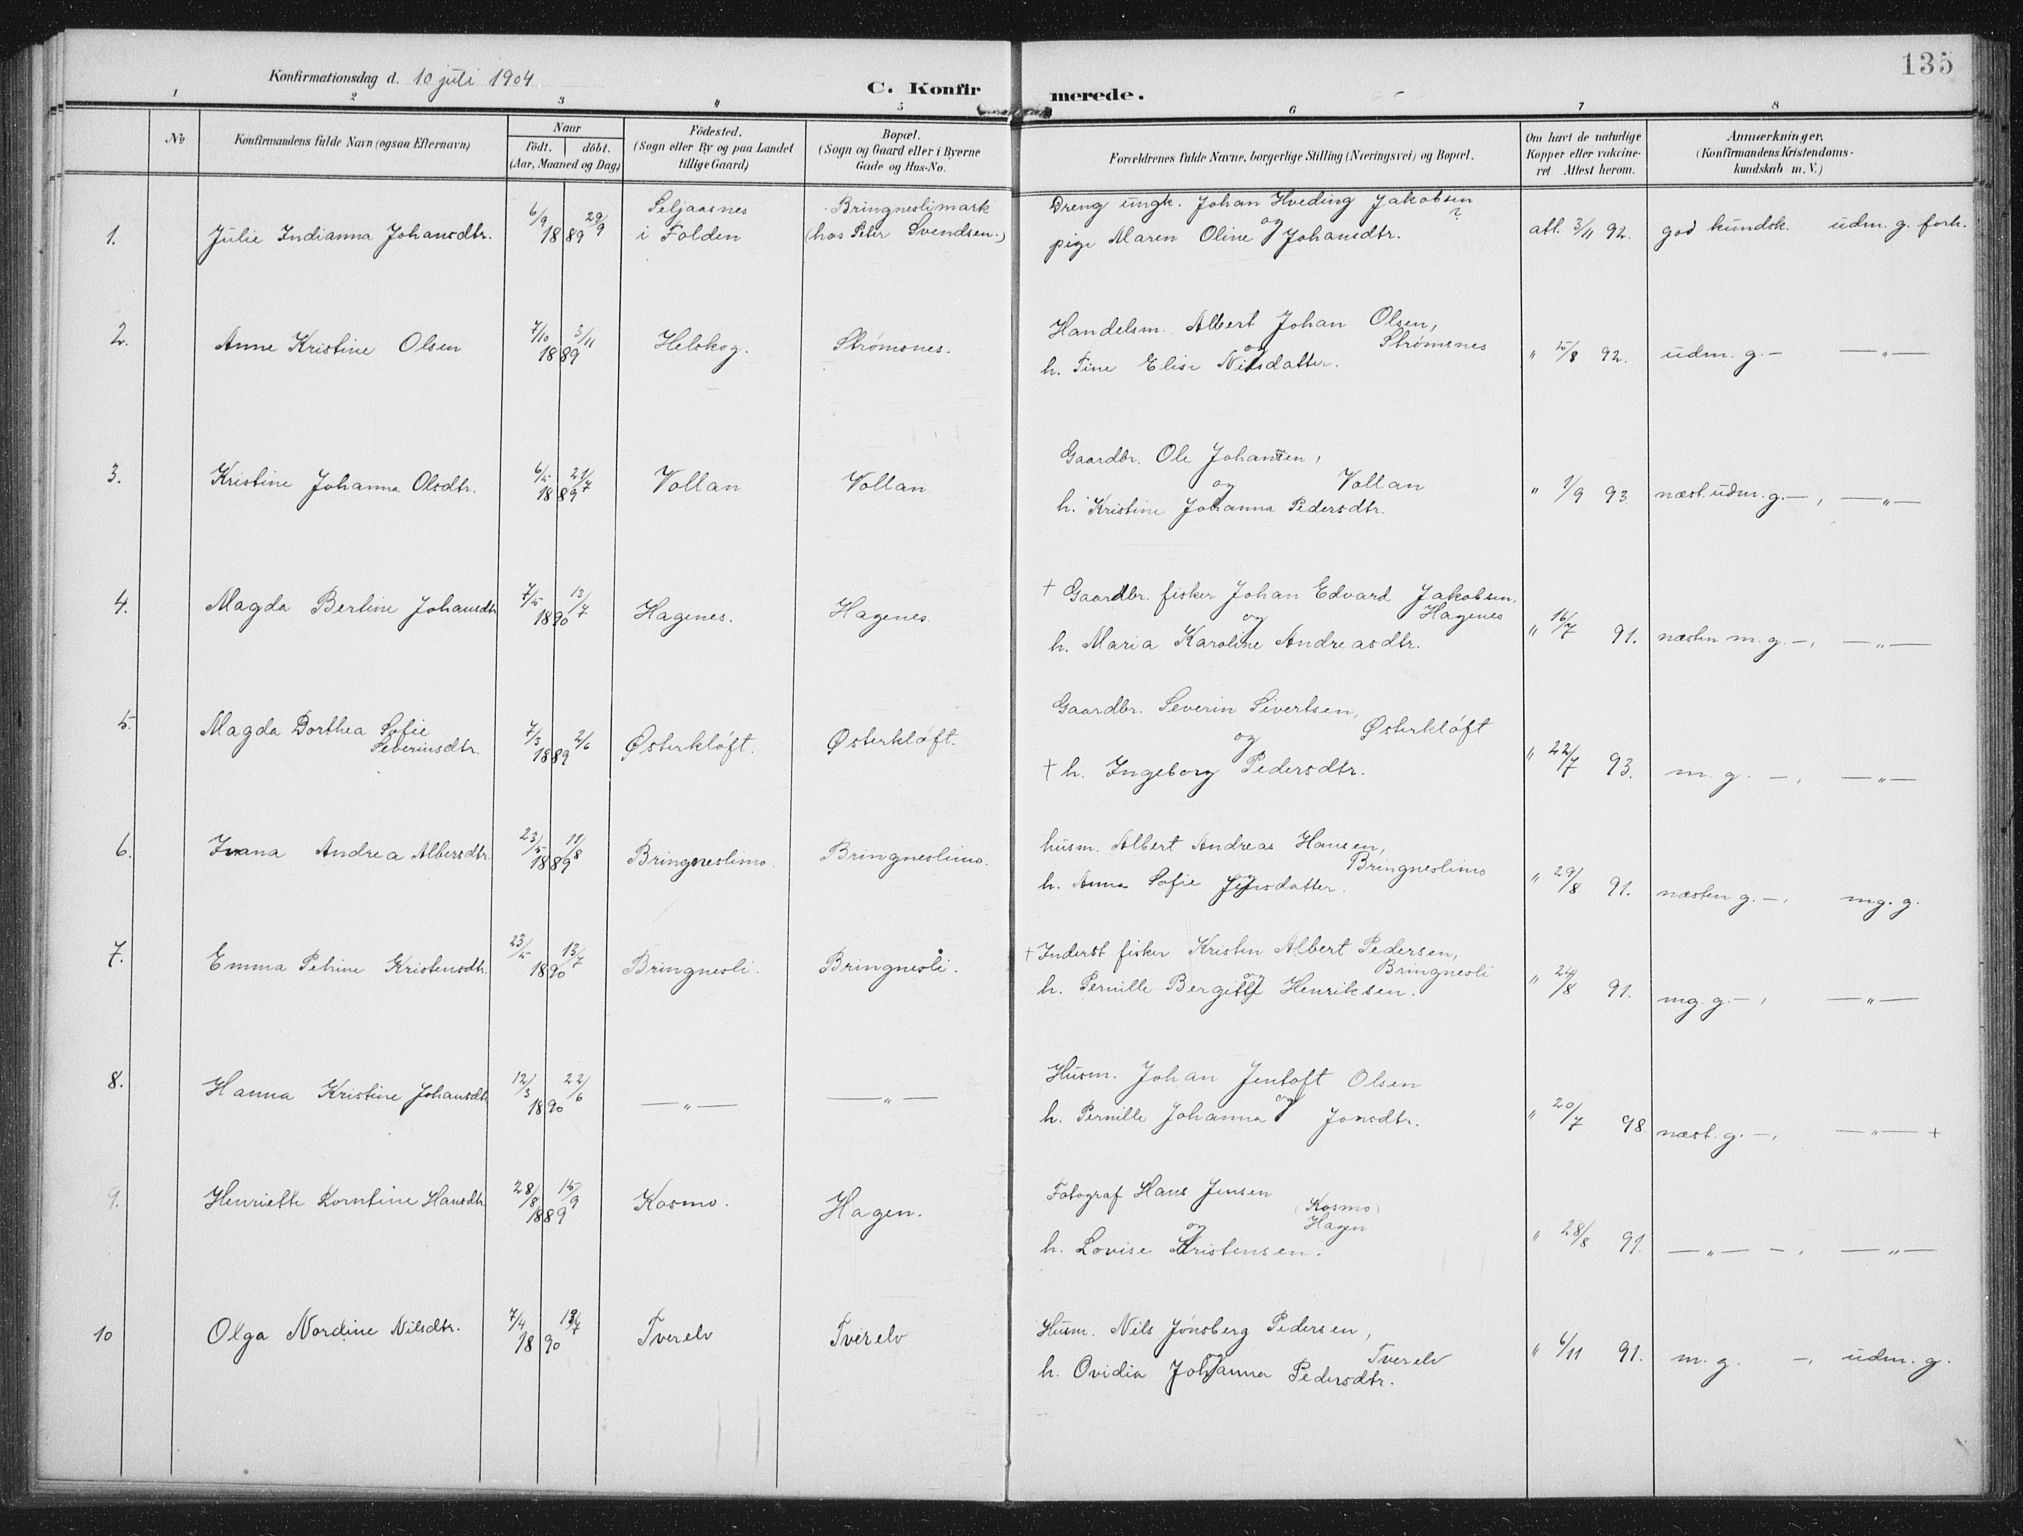 135
Konfirmationsdag d. 10 juli 1904
C. Konfirmerede.
1 2 3 4 5 6 7 8
No
Konfirmandens fulde Navn (ogsaa Efternavn)
Naar
födt. döbt.
(Aar, Maaned og Dag)
Födested.
(Sogn eller By og paa Landet
tillige Gaard)
Bopæl.
(Sogn og Gaard eller i Byerne
Gade og Hus-No.
Forældrenes fulde Navne, borgerlige Stilling (Næringsvei) og Bopæl.
Om havt de naturlige
Kopper eller vakcine-
ret Attest herom.
Anmærkninger.
(Konfirmandens Kristendoms-
kundskab m. V.)
1. Julie Indianna Johansdtr. 6/9 29/9 1889
Seljaasnes
i Folden
Bringneslimark
(hos Peter Svendsen.)
Dreng ungk. Johan Hveding Jakobsen ?
og
pige Maren Oline Johansdtr.
att. 3/11 92. god kundsk. udm. g. forh.
2. Anne Kristine Olsen 7/10 3/11 1889 Helskog. Strømsnes.
Handelsm. Albert Johan Olsen,
og Strømsnes
h. Tine Elise Nilsdatter.
" 15/8 92. udm. g. — —"—
3. Kristine Johanna Olsdtr. 6/5 21/7 1889 Vollan Vollan
Gaardbr. Ole Johansen,
og Vollan
h. Kristine Johanna Pedersdtr.
" 1/9 93 næst. udm. g. —, —"—
4. Magda Bertine Johansdtr 7/5 13/7 1890 Hagenes. Hagenes.
+ Gaardbr. fisker Johan Edvard Jakobsen,
og Hagenes
h. Maria Karoline Andreasdtr.
" 16/7 91. næsten m. g. —, —"—
5. Magda Dorthea Sofie
Severinsdtr. 7/3 2/6 1889 Østerkløft. Østerkløft.
Gaardbr. Severin Sivertsen,
og Østerkløft
+ h. Ingeborg Pedersdtr.
" 22/7 93. m. g. —, —"—
6. Ivana Andrea Albersdtr. 23/5 11/8 1889 Bringneslimo. Bringneslimo.
husm. Albert Andreas Hansen,
og Bringneslimo
h. Anna Sofie Jensdatter.
" 29/8 91. næsten g. —, mg. g.
7. Emma Petrine Kristensdtr. 23/5 13/7 1890 Bringnesli. Bringnesli.
+ Inderst fisker Kristen Albert Pedersen,
og Bringnesli
h. Pernille Bergitte Henriksen.
" 24/8 91. mg. g. —, —"—
8. Hanna Kristine Johansdtr 12/3 22/6 1890 —"— —"—
Husm. Johan Jentoft Olsen
og
h. Pernille Johanna Jonsdtr.
" 20/7 98 næst. g. —, —"— +
9. Henriette Korntine Hansdtr. 28/8 15/9 1889 Kosmo. Hagen.
Fotograf Hans Jensen
(Kosmo)
og Hagen
h. Lovise Kristensen.
" 28/8 91. —"— —, —"—
10 Olga Nordine Nilsdtr. 7/4 13/7 1890 Tverelv Tverelv
Husm. Nils Jønsberg Pedersen,
og Tverelv
h. Ovidia Johanna Pedersdtr.
" 6/11 91. m. g. —, udm. g.